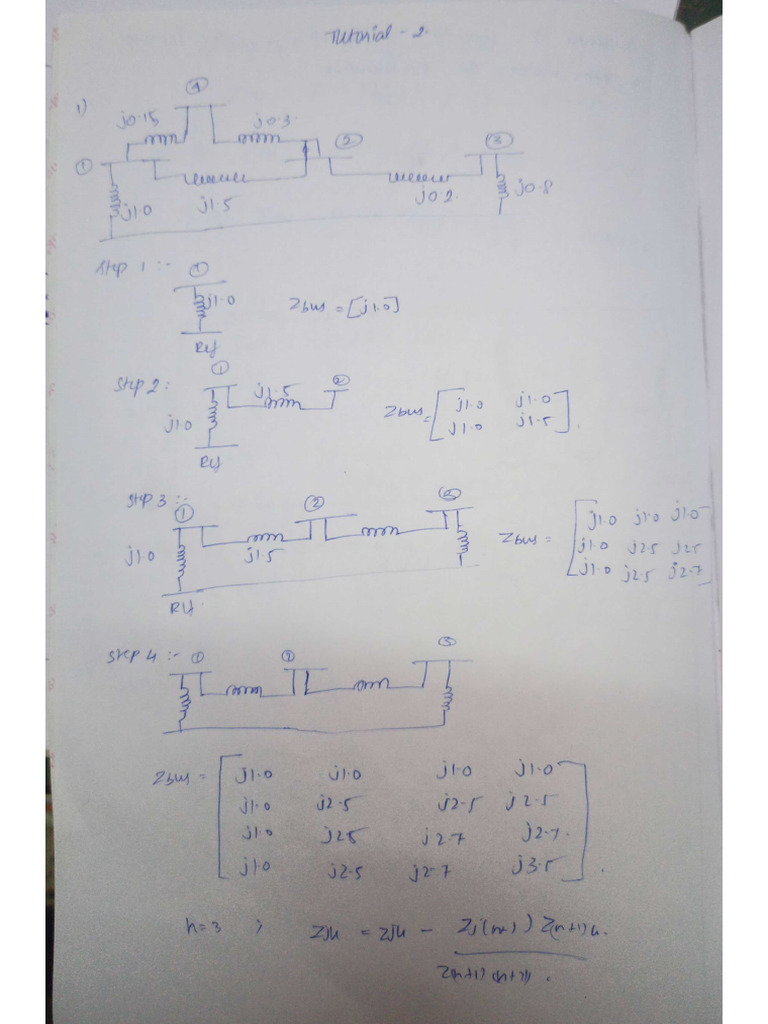 Tutorial - 2.
1)
④
j0.15
j0.3
①
②
③
j1.0
j1.5
j0.2.
j0.8
Step 1 :-
①
j1.0
Zbus = [j1.0]
Ref
Step 2 :
①
j1.5
②
j1.0
Zbus = [j1.0 j1.0
j1.0 j1.5].
Ref
Step 3 :-
①
②
③
j1.0
j1.5
Zbus = [j1.0 j1.0 j1.0
j1.0 j2.5 j2.5
j1.0 j2.5 j2.7]
Ref.
Step 4 :-
①
②
③
Zbus = [j1.0 j1.0 j1.0 j1.0
j1.0 j2.5 j2.5 j2.5
j1.0 j2.5 j2.7 j2.7.
j1.0 j2.5 j2.7 j3.5].
n=3 ; Zjk = Zjk - Zj(n+1) Z(n+1)k.